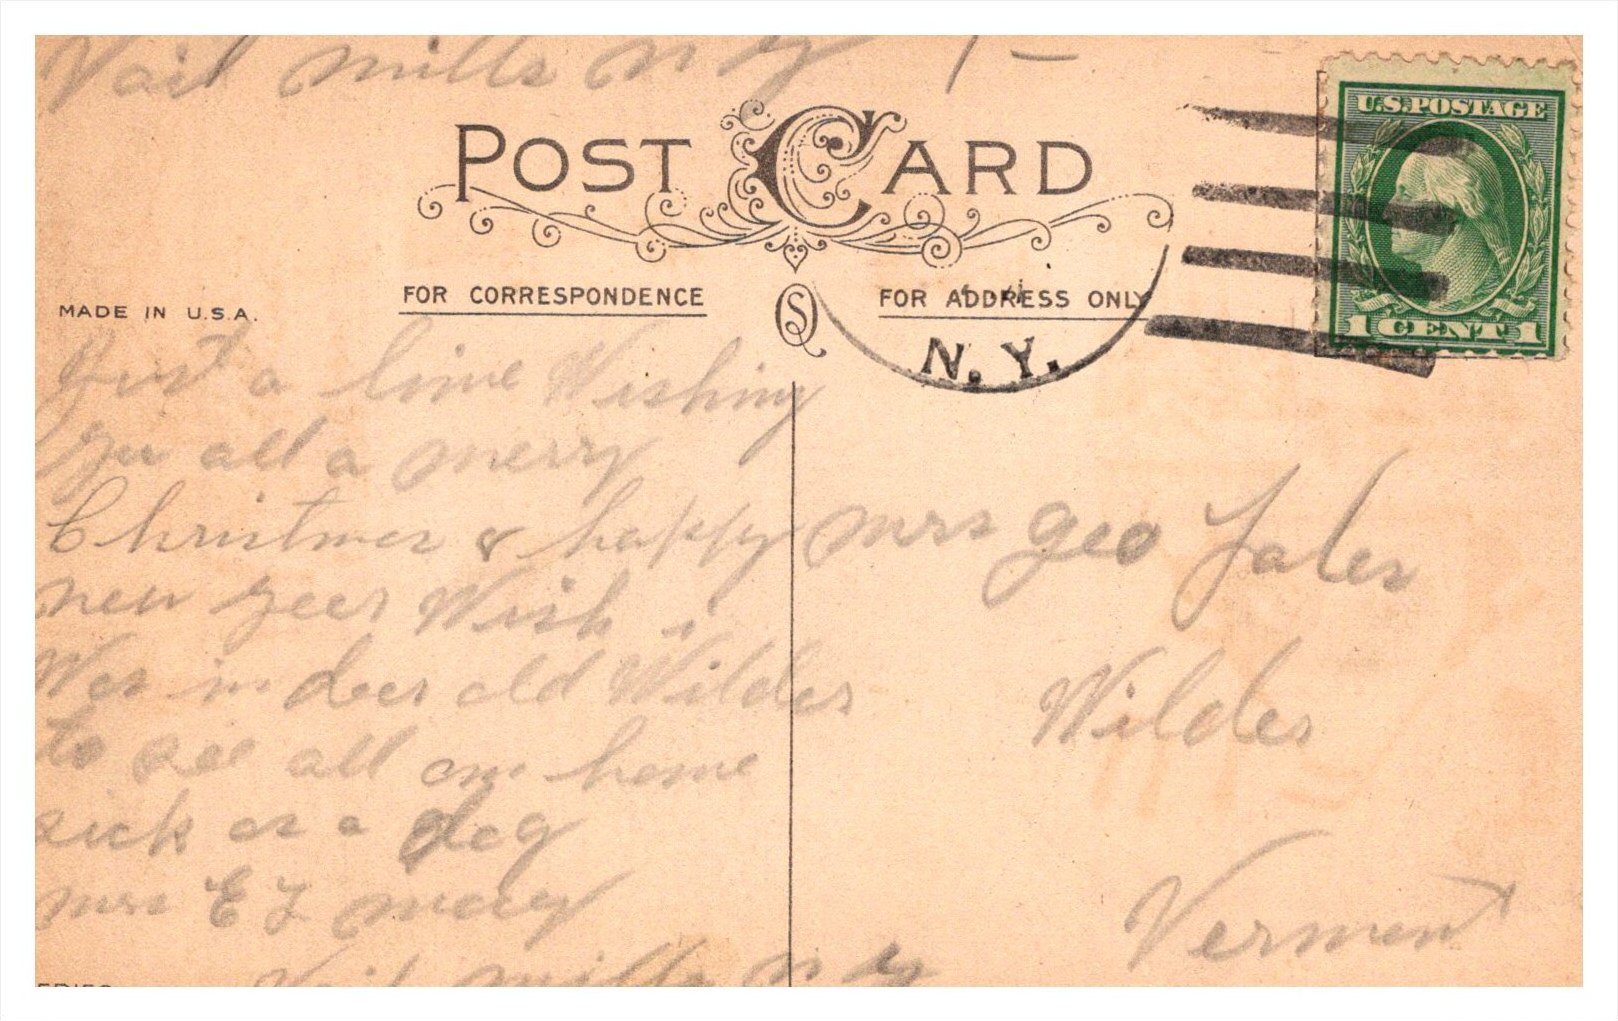 Vail mills n y
POST CARD
U.S. POSTAGE
1 CENT 1
N. Y.
MADE IN U.S.A.
FOR CORRESPONDENCE
FOR ADDRESS ONLY
Just a line Wishing
you all a merry
Christmas & happy
new year Wish i
Was in dear old Wilder
to see all am home
sick as a dog
mrs E
Vail mills n y
mrs Geo
Wilder
Vermont